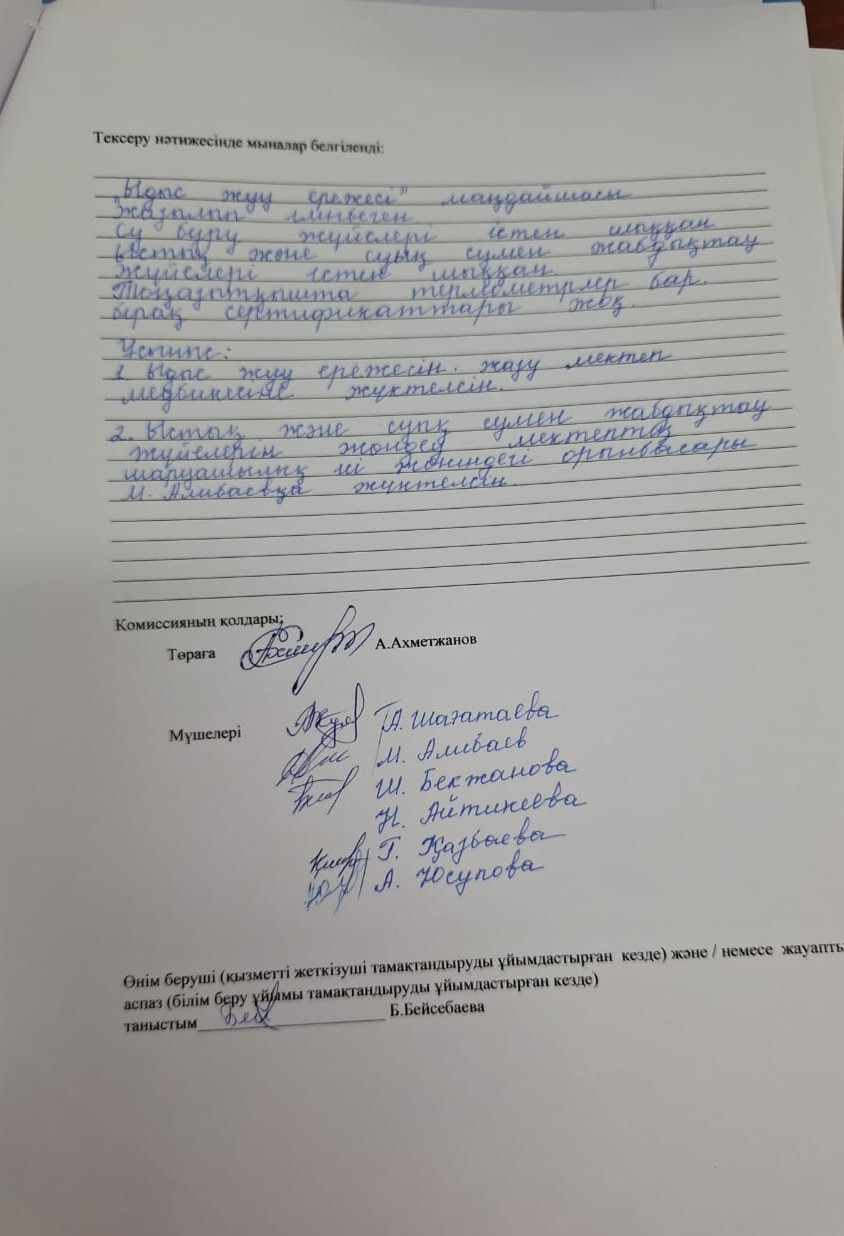 Тексеру нәтижесінде мыналар белгіленді:
"Ыдыс жуу ережесі" маңдайшасы
жазылып ілінбеген.
Су бұру жүйелері істен шыққан
Ыстық және суық сумен жабдықтау
жүйелері істен шыққан.
Тоңазытқышта термометрлер бар.
бірақ сертификаттары жоқ.
Ұсыныс:
1. Ыдыс жуу ережесін жазу мектеп
медбикесіне жүктелсін.
2. Ыстық және суық сумен жабдықтау
жүйелерін жөндеу мектептің
шаруашылық ісі жөніндегі орынбасары
М. Алибаевқа жүктелсін.
Комиссияның қолдары;
Төраға А.Ахметжанов
Мүшелері А. Шагатаева
М. Алибаев
Ш. Бекжанова
Н. Айтикеева
Г. Қазбаева
А. Юсупова
Өнім беруші (қызметті жеткізуші тамақтандыруды ұйымдастырған кезде) және / немесе жауапты
аспаз (білім беру ұйымы тамақтандыруды ұйымдастырған кезде)
таныстым Б.Бейсебаева